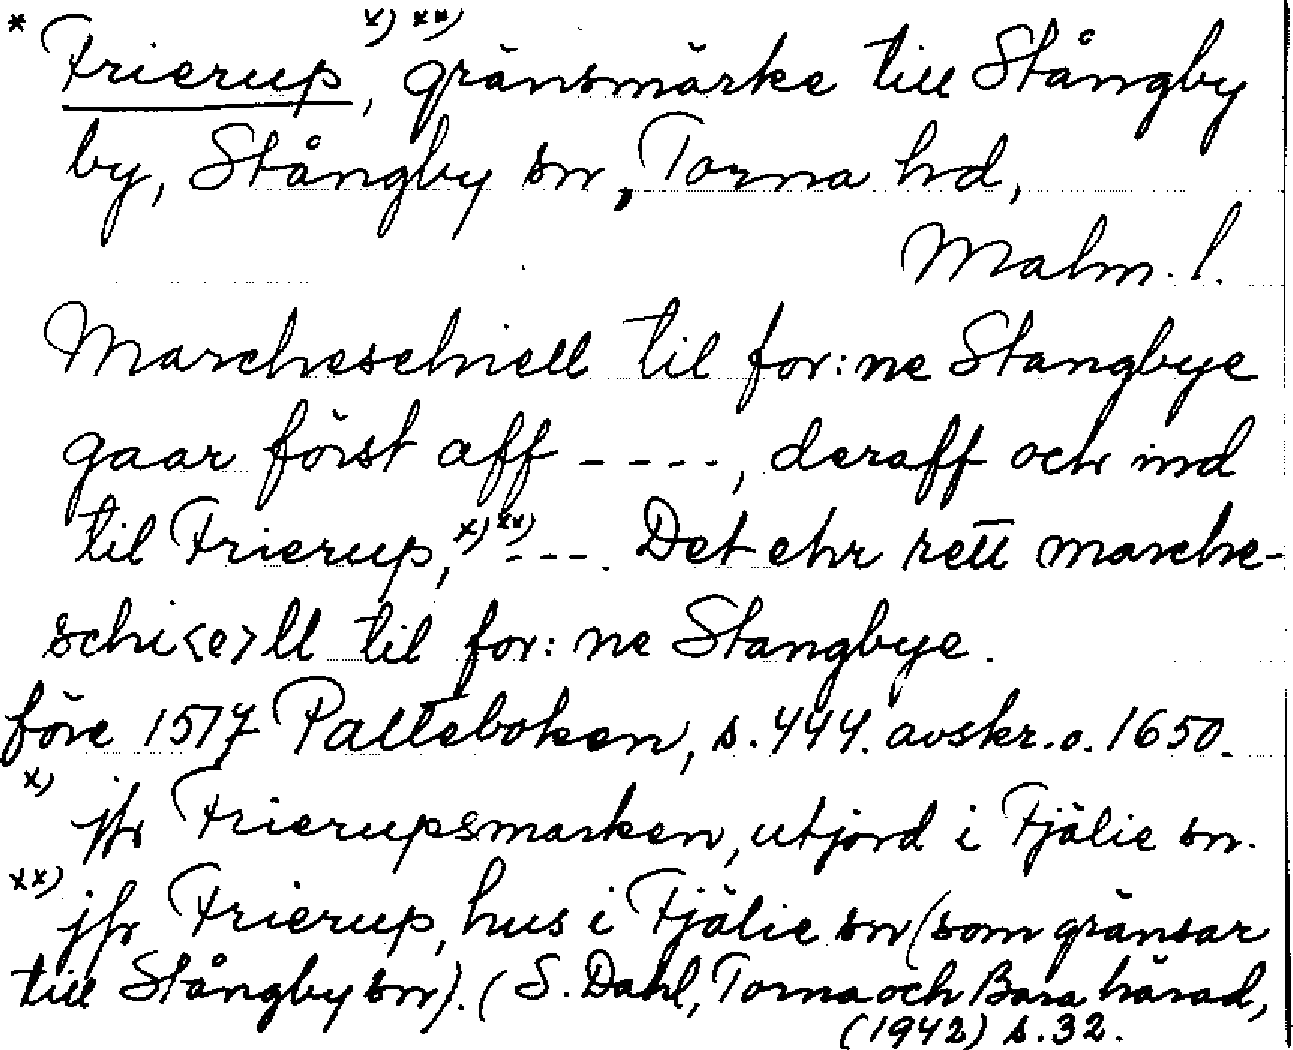 * Frierup, x) xx) gränsmärke till Stångby
by, Stångby sn, Torna hd,
Malm. l.
Marcheschiell til for:ne Stangbye
gaar först aff ----, deraff och ind
til Frierup, x) xx) ---. Det ehr rett marche-
schi<e>ll til for:ne Stangbye.
före 1517 Palteboken, s. 444. avskr. o. 1650.
x) jfr Frierupsmarken, utjord i Fjälie sn.
xx) jfr Frierup, hus i Fjälie sn (som gränsar
till Stångby sn). (S. Dahl, Torna och Bara härad,
(1942) s. 32.